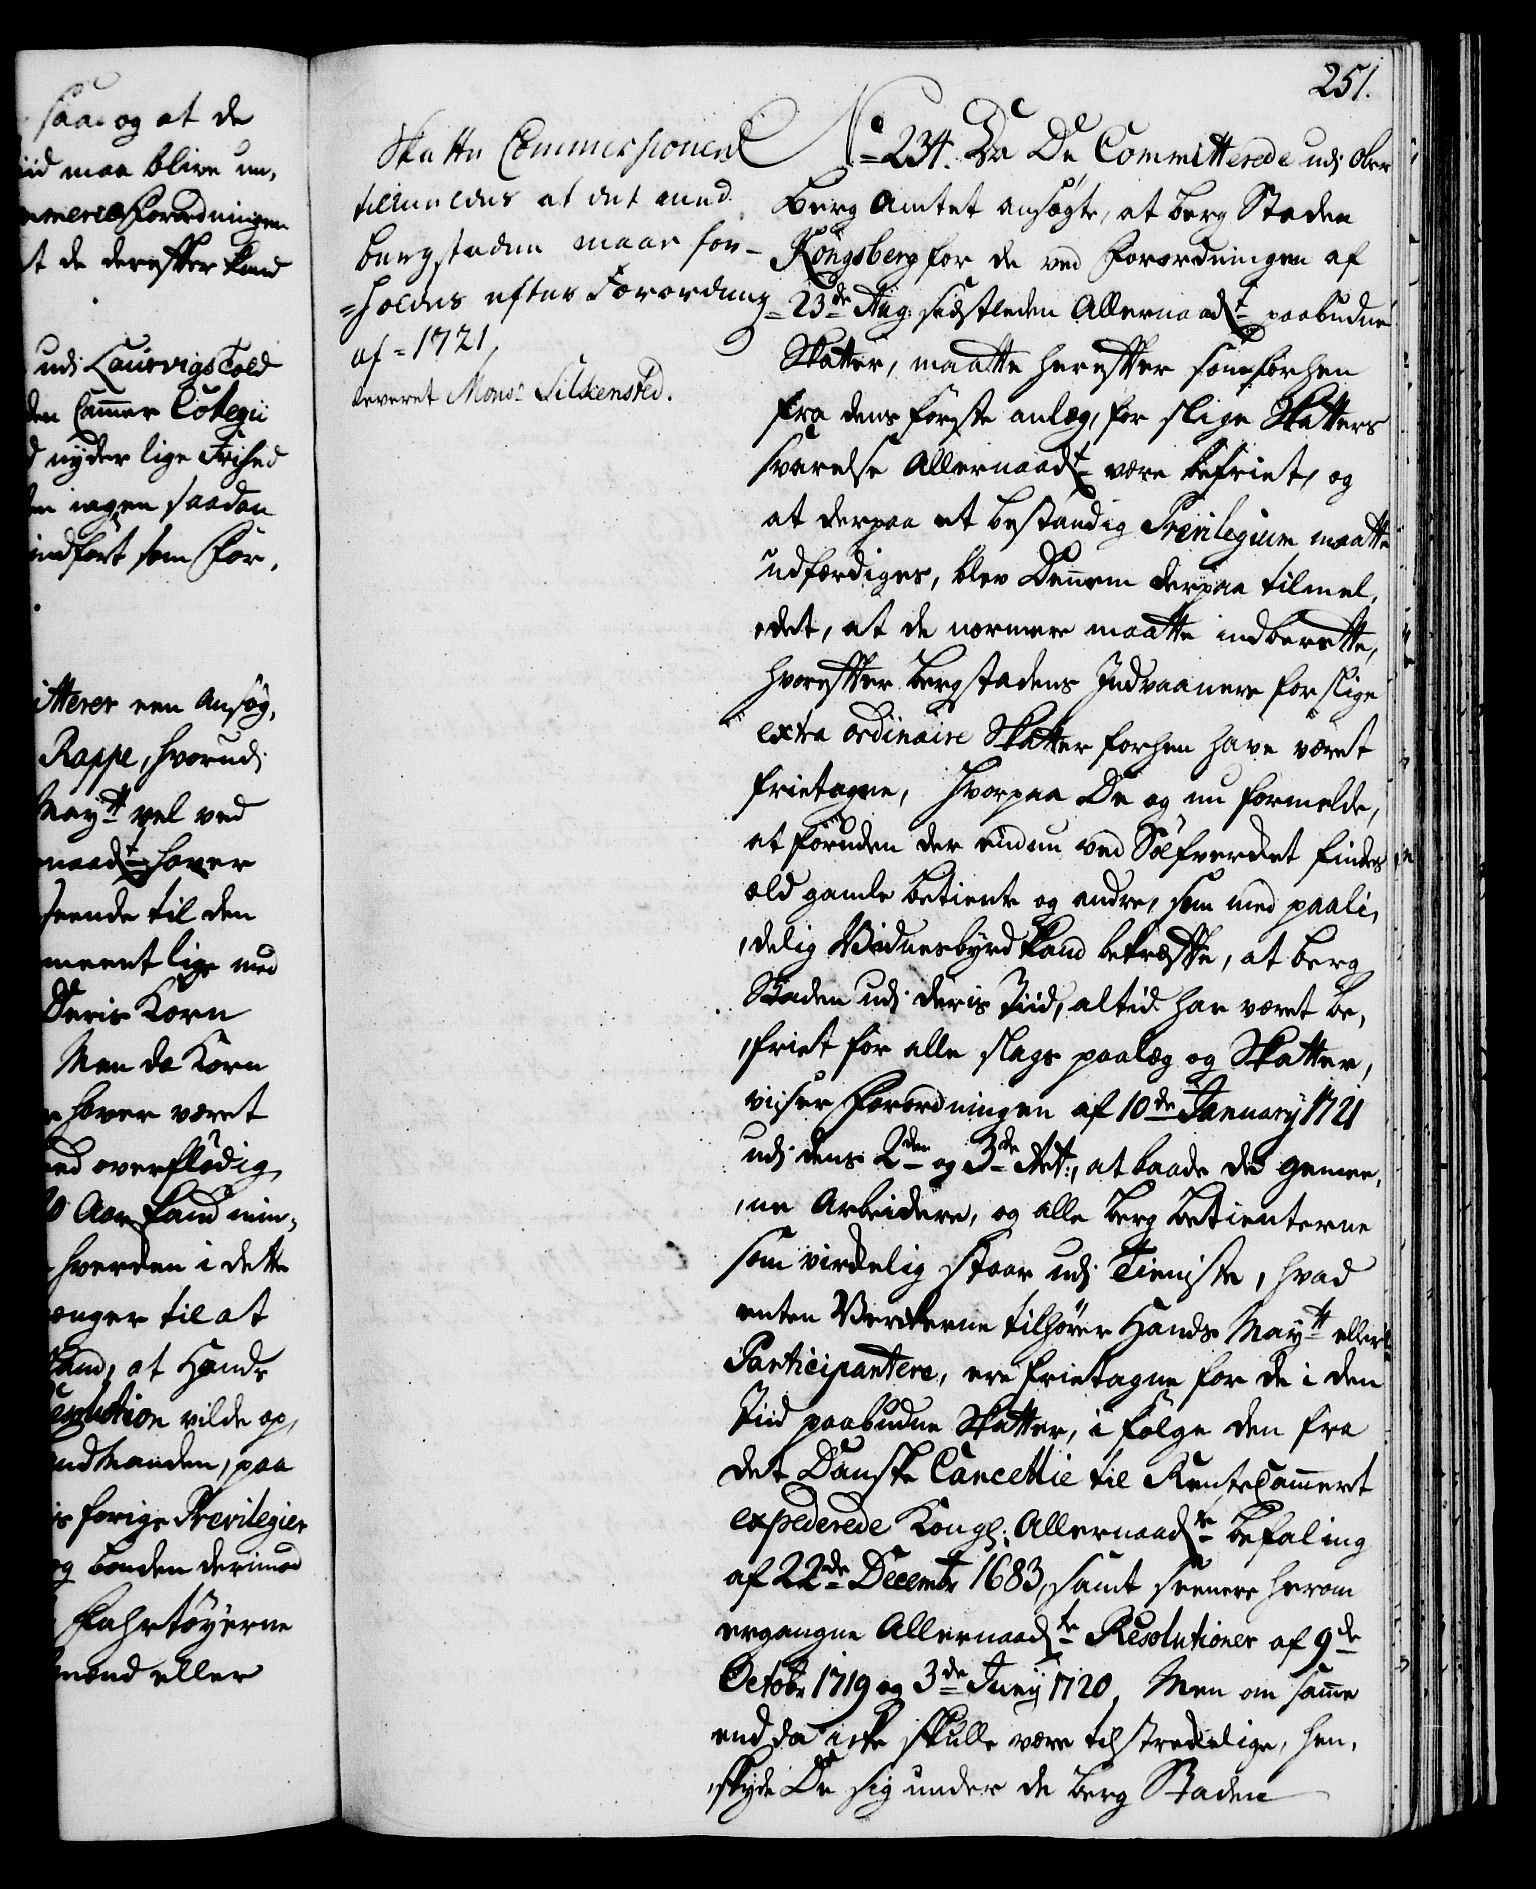 saa og at de
tiid maa blive un,
Forordningen
at de derefter kand
udi Laurvigs Told
den Cammer Collegii
nyder lige Frihed
ingen saadan
indført som for,
itterer een Ansøg,
Rappe, hvorudi
Mayst vel ved
naadst haver
seende til den
ment lige med
Deris Korn
Men da Korn
haver været
overflødig
Aar kand min,
hverden i dette
trænger til at
Land, at Hands
Resolution vilde op,
Landmanden, paa
forige Previlegier
og bonden derimod
Fahrtøyerne
mænd eller
251.
Skatte Commissionen
tilmeldes at det med
bergstaden maae for-
=holdes efter Forordning
af 1721,
leveret Monsr Lillienstred.
No 234. Da De Committerede udi Ober
Berg Amtet ansøgte, at berg Staden
Kongsberg for de ved Forordningen af
23de Aug: sidstleden Allernaadst paabudne
Skatter, maatte herefter som forhen
fra dens første anlæg, for slige Skatters
svarelse Allernaadst være befriet, og
at derpaa et bestandig Previlegium maatte
udfærdiges, blev Dennem derpaa tilmel,
,det, at de nærmere maatte indberette,
hvorefter bergstadens Indvaanere for slige
extra ordinaire Skatter forhen have været
frietagne, Hvorpaa De og nu formelde,
at foruden der endnu ved Sølfverket findes
æld gamle betiente og andre, som med paali,
,delig Vidnesbyrd kand bekræfte, at berg
Staden udi deris Tiid, altid har været be,
,friet for alle slags paalæg og Skatter,
viiser Forordningen af 10de January 1721
udi dens 2den og 3de Art:, at baade de gemee,
,ne Arbeidere, og alle berg betienterne
som virkelig staar udi Tieniste, hvad
enten Verkerne tilhører Hands Mayst eller
Participantere, ere frietagne for de i den
Tiid paabudne Skatter, i følge den fra
det Danske Cancellie til RenteCammert
expederede Kongl: Allernaadste befaling
af 22de Decembr 1683, samt seenere herom
ergangne Allernaadste Resolutioner af 9de
Octobr 1719 og 3de Juny 1720, Men om samme
end da icke skulle være tilstreckelige, hen,
,skyde De sig under de berg Staden